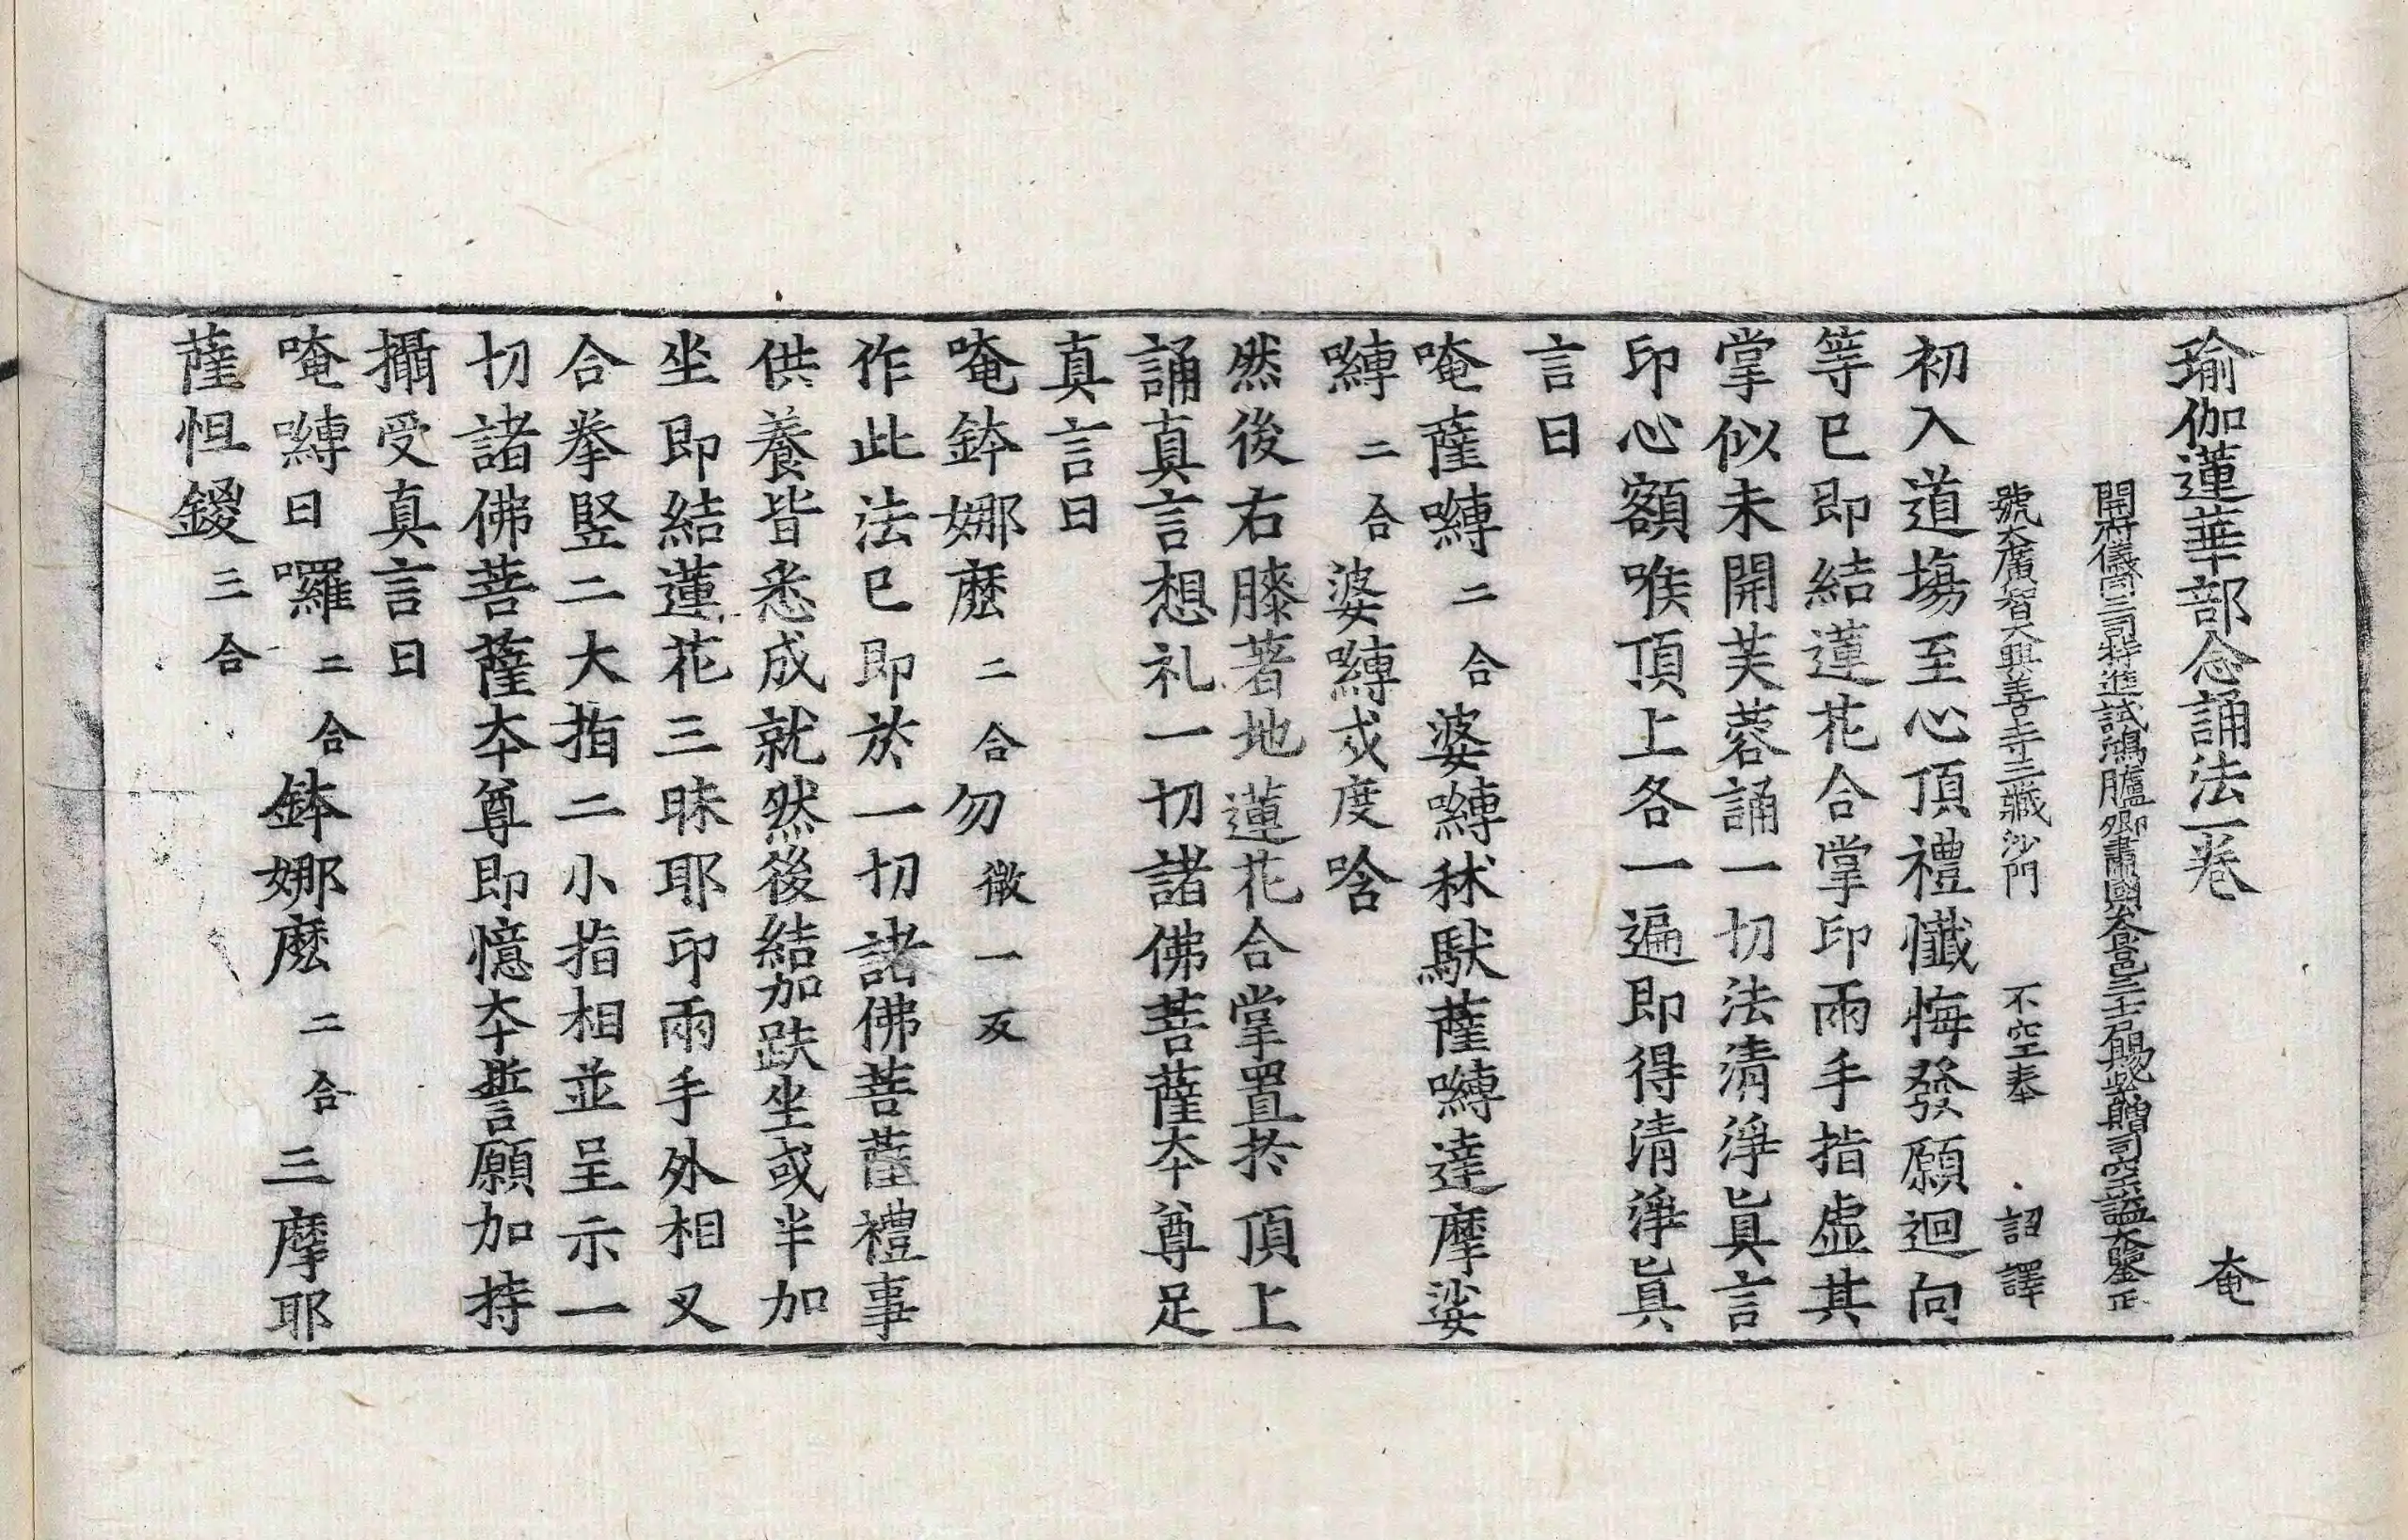 瑜伽蓮華部念誦法一卷 奄
開府儀同三司特進試鴻臚卿肅國公食邑三千戶賜紫贈司空諡大鑒正
號大廣智大興善寺三藏沙門 不空奉 詔譯
初入道場至心頂禮懺悔發願迴向
等已即結蓮花合掌印兩手指虛其
掌似未開芙蓉誦一切法清淨真言
印心額喉頂上各一遍即得清淨真
言曰
唵薩嚩二合婆嚩秫馱薩嚩達摩娑
嚩二合婆嚩戍度唅
然後右膝著地蓮花合掌置於頂上
誦真言想礼一切諸佛菩薩夲尊足
真言曰
唵鉢娜麼二合勿微一反
作此法已即於一切諸佛菩薩禮事
供養皆悉成就然後結加趺坐或半加
坐即結蓮花三昧耶印兩手外相叉
合拳竪二大指二小指相並呈示一
切諸佛菩薩夲尊即憶夲誓願加持
攝受真言曰
唵嚩日囉二合鉢娜麼二合三摩耶
薩怛鑁三合